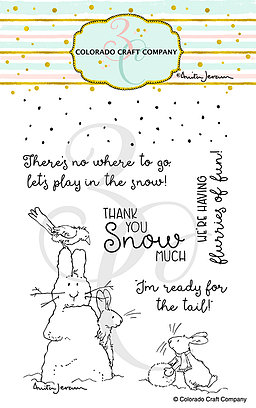 COLORADO CRAFT COMPANY
©Anita Jeram
There's no where to go,
let's play in the snow!
WE'RE HAVING
flurries of fun!
THANK
YOU
Snow
MUCH
"I'm ready for
the tail!"
Anita Jeram
© Colorado Craft Company